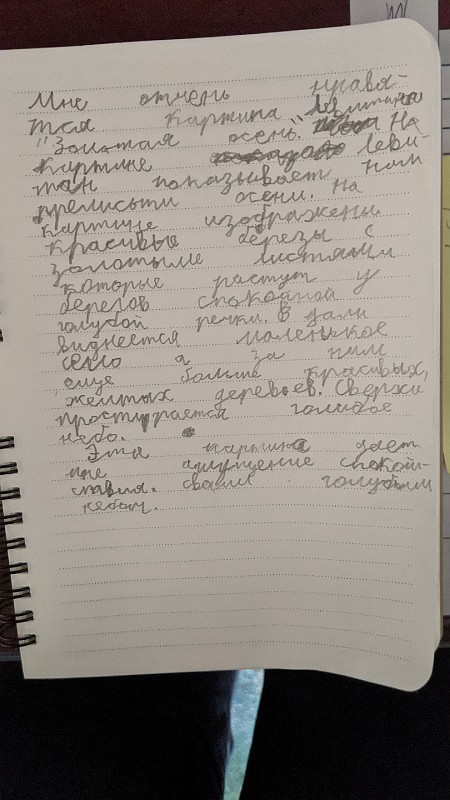 Мне отчень нравя-
тся картина Левитана
"Золотая осень." На
картине Леви-
тан показывает нам
прелисьти осени. На
картине изображены
красивые березы с
золотыме листями
которые растут у
берегов спокойной
голубой речки. В дали
виднеется маленькое
село а за ним
еще больше красивых,
желтых деревьев. Сверху
простирается голубое
небо.
Эта картина дает
мне ощущение спокой-
ствия. своим голубым
небом.